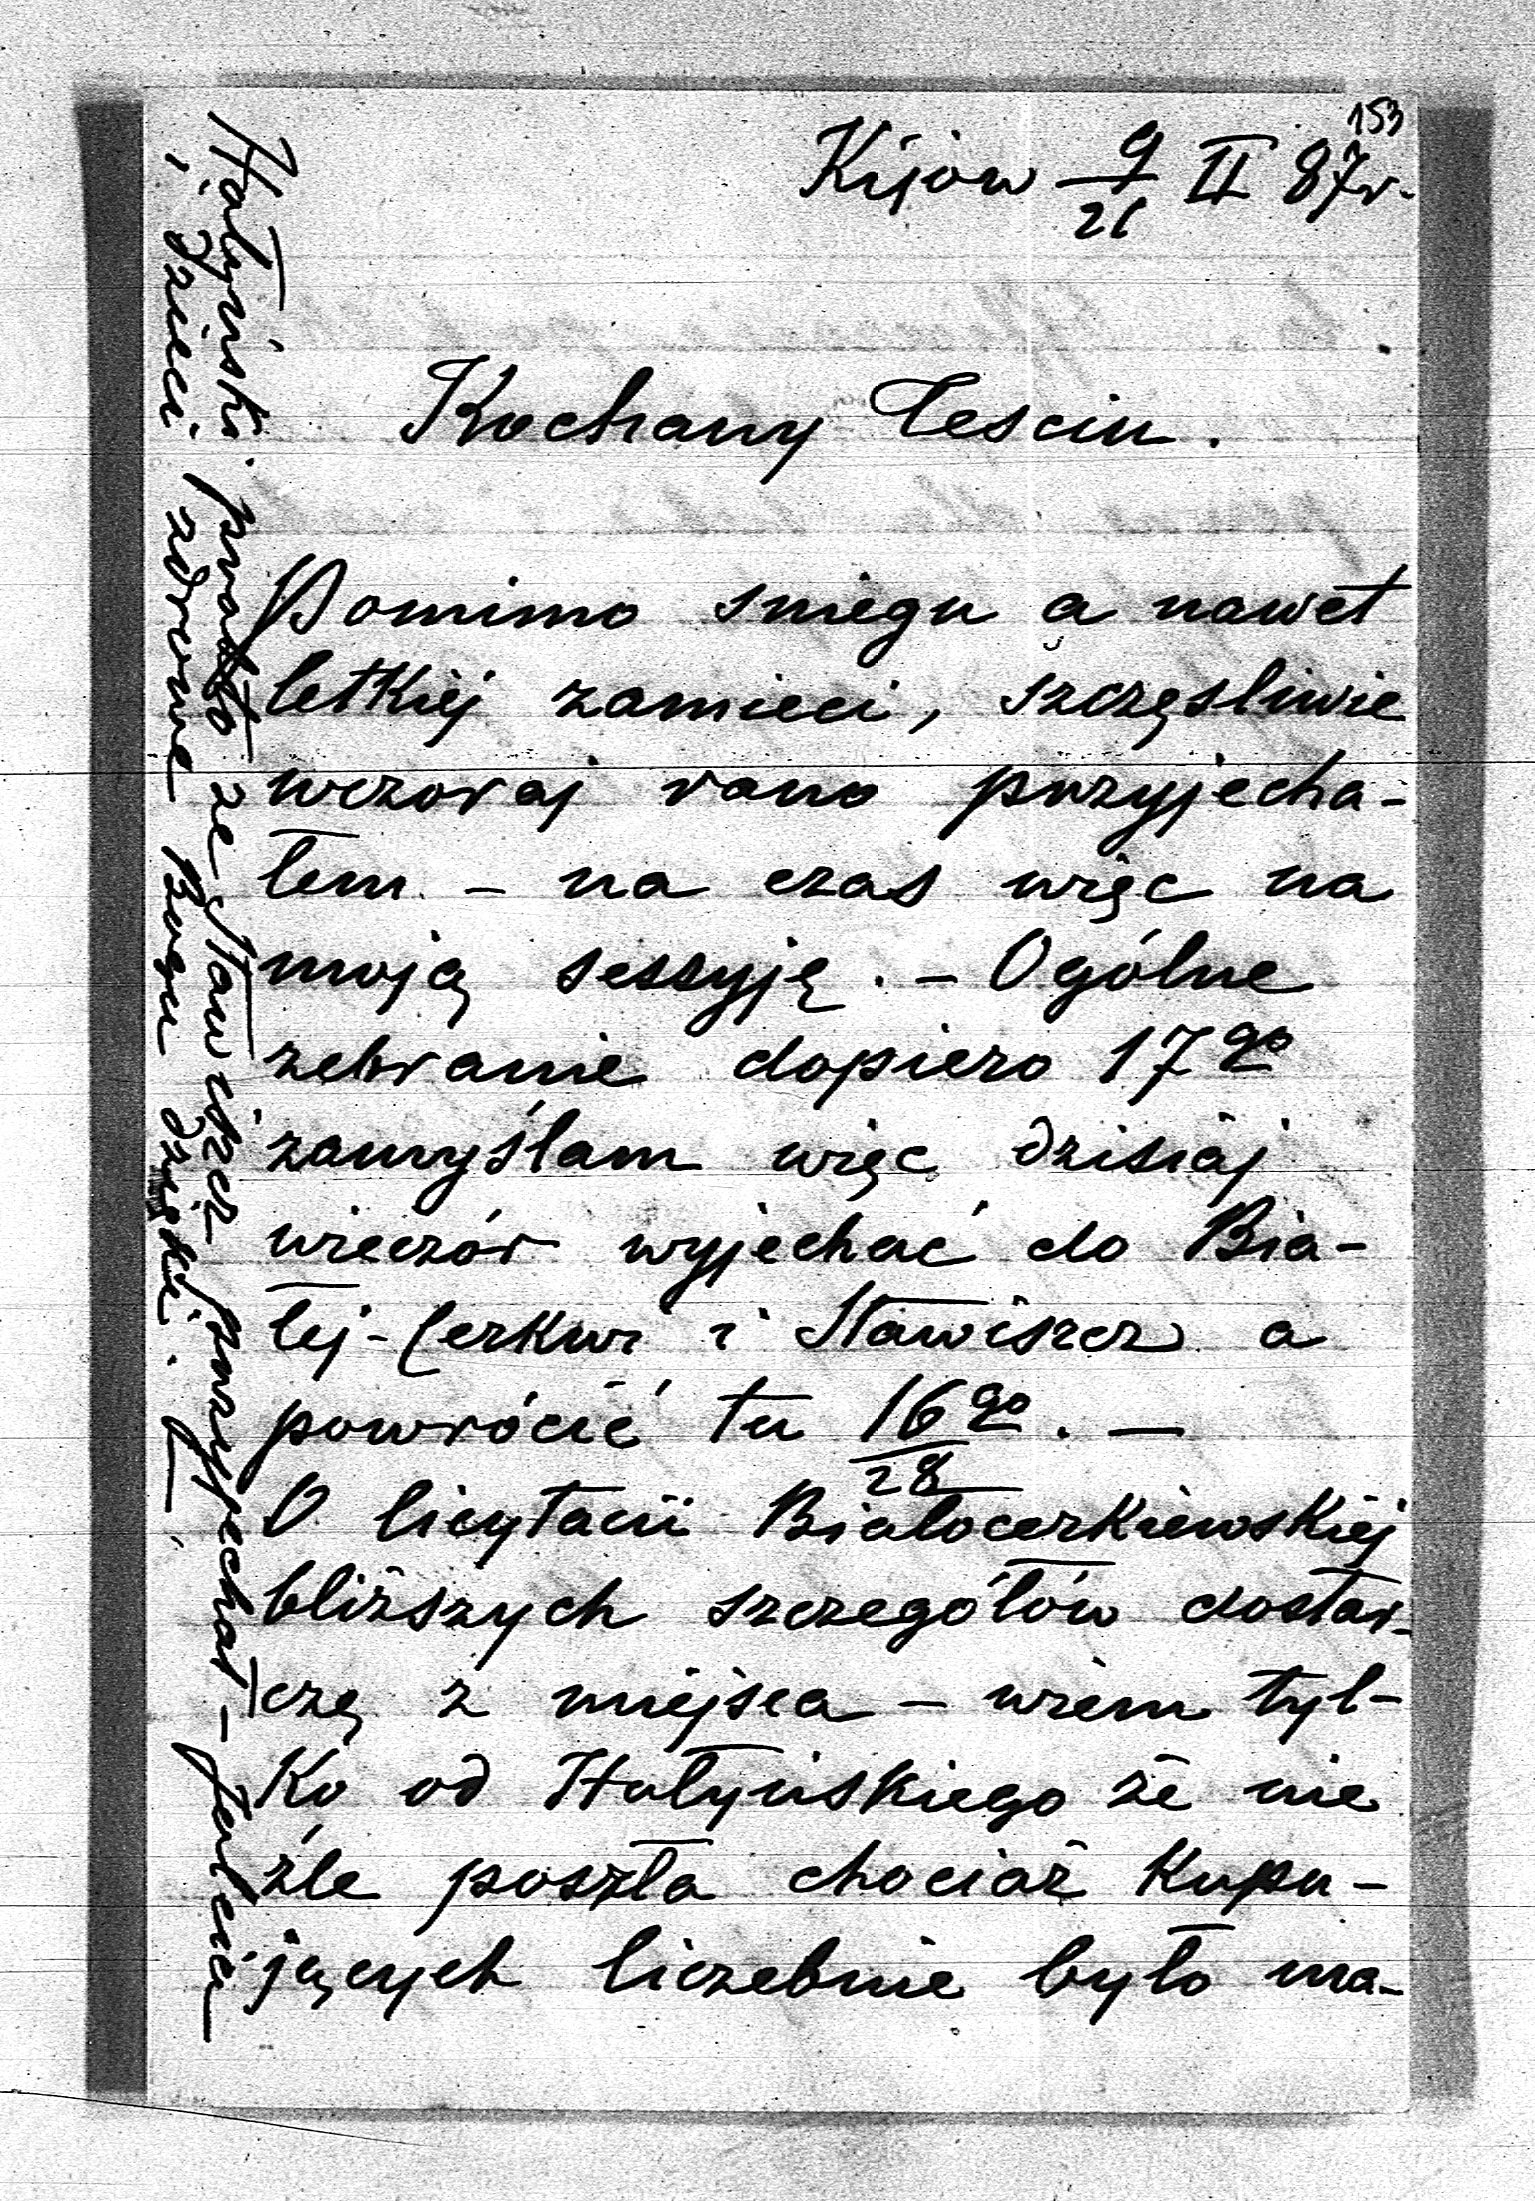 153
Kijow 9/21 II 87 r.
Kochany Teściu.
Pomimo sniegu a nawet
letkiéj zamieci, szczęsliwie
wczoraj rano przyjecha-
łem – na czas więc na
moją sessyję. – Ogólne
zebranie dopiero 17go
zamyślam więc dzisiaj
wieczór wyjechać do Bia-
łej-Cerkwi i Stawiszcz a
powrócić tu 16go/28. –
O licytacii Białocerkiewskiéj
bliższych szczegółów dostar-
czę z miejsca – wiem tyl-
ko od Hołyńskiego że nie
źle poszła chociaż kupu-
jących liczebnie było ma-
Hołyński prosto ze Stawiszcz przyjechał –
i dzieci zdrowe Bogu dzięki.